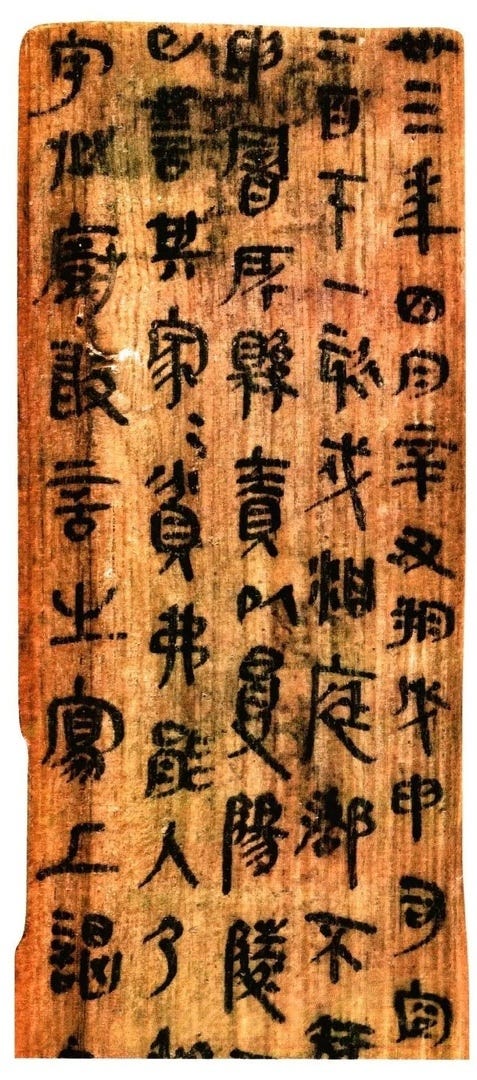 卅三年四月辛丑朔戊申司空
三百 一 戍洞庭郡不
署所縣責以受陽陵
已訾其家〻貧弗能入乃
守丞廚敢言之寫上謁